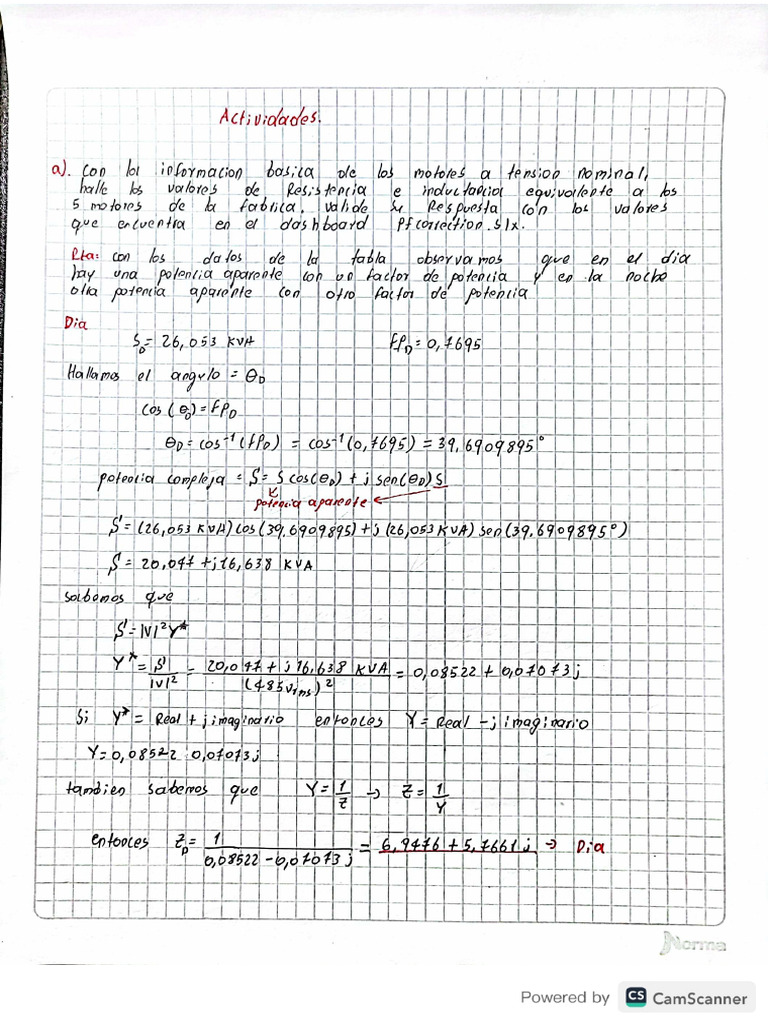 Actividades.
a). Con la informacion basica de los motores a tension nominal,
halle los valores de Resistencia e inductancia equivalente a los
5 motores de la fabrica. valide su Respuesta con los valores
que encuentra en el dashboard Pfcorrection.slx.
Rta: con los datos de la tabla observamos que en el dia
hay una potencia aparente con un factor de potencia y en la noche
otra potencia aparente con otro factor de potencia
Dia
S_D = 26,053 KVA FP_D = 0,7695
Hallamos el angulo = θ_D
cos(θ_D) = FP_D
θ_D = cos⁻¹(fp_D) = cos⁻¹(0,7695) = 39,6909895°
potencia compleja = S = S cos(θ_D) + j sen(θ_D) S
potencia aparente
S = (26,053 KVA) cos(39,6909895) + j (26,053 KVA) sen(39,6909895°)
S = 20,047 + j16,638 KVA
sabemos que
S = |V|² Y*
Y* = S / |V|² = 20,047 + j 16,638 KVA / (485 Vrms)² = 0,08522 + 0,07073j
Si Y* = Real + j imaginario entonces Y = Real - j imaginario
Y = 0,08522 0,07073j
tambien sabemos que Y = 1/Z → Z = 1/Y
entonces Z_D = 1 / 0,08522 - 0,07073j = 6,9476 + 5,7661j → Dia
Norma
Powered by CS CamScanner